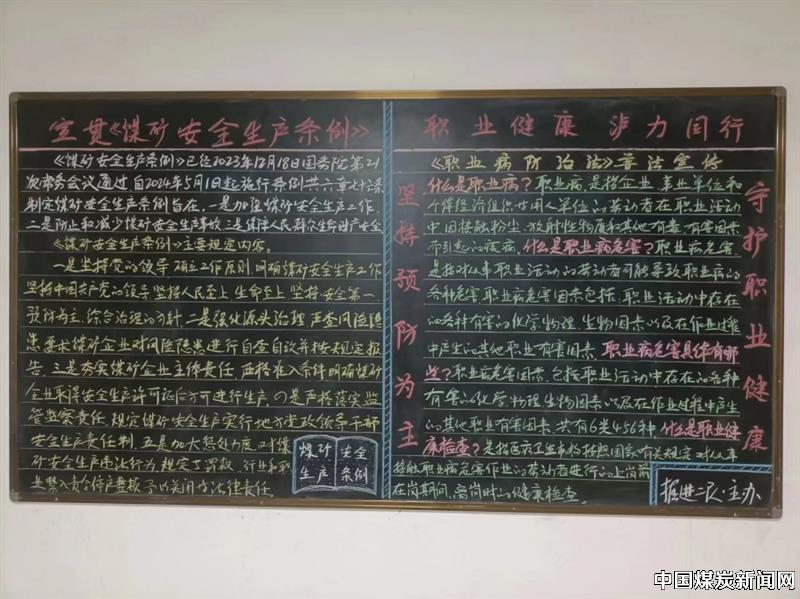 宣贯《煤矿安全生产条例》
《煤矿安全生产条例》已经2023年12月18日国务院第21
次常务会议通过自2024年5月1日起施行条例共六章七十六条
制定煤矿安全生产条例旨在，一是加强煤矿安全生产工作，
二是防止和减少煤矿安全生产事故，三是保障人民群众生命财产安全
《煤矿安全生产条例》主要规定内容。
一是坚持党的领导 确立工作原则，明确煤矿安全生产工作
坚持中国共产党的领导 坚持人民至上 生命至上 坚持安全第一
预防为主，综合治理的方针，二是强化源头治理，严查风险隐
患要求煤矿企业对风险隐患进行自查自改并按规定报
告，三是夯实煤矿企业主体责任，严格准入条件明确煤矿
企业取得安全生产许可证后方可进行生产，四是严格落实监
管监察责任，规定煤矿安全生产实行地方党政领导干部
安全生产责任制，五是加大惩处力度，对煤
矿安全生产违法行为，规定了罚款，行业和职
业禁入责令停产整顿 予以关闭等法律责任
煤矿 安全
生产 条例
职业健康 泸力同行
《职业病防治法》普法宣传
坚持预防为主
什么是职业病？职业病，是指企业、事业单位和
个体经济组织等用人单位的劳动者在职业活动
中因接触粉尘、放射性物质和其他有毒、有害因素
而引起的疾病，什么是职业病危害？职业病危害，
是指对从事职业活动的劳动者可能导致职业病的
各种危害，职业病危害因素包括，职业活动中存在
的各种有害的化学、物理、生物因素以及在作业过程
中产生的其他职业有害因素，职业病危害具体有哪
些？职业病危害因素，包括职业活动中存在的各种
有害的化学，物理 生物因素以及在作业过程中产生
的其他职业有害因素，共有6类456种，什么是职业健
康检查？是指医疗卫生机构按照国家有关规定，对从事
接触职业病危害作业的劳动者进行的上岗前
在岗期间、离岗时的健康检查。
守护职业健康
掘进二队·主办
中国煤炭新闻网